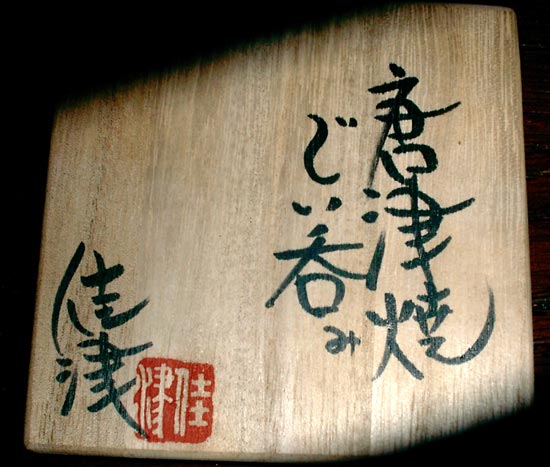 唐津焼
ぐい呑み
佳津
佳津